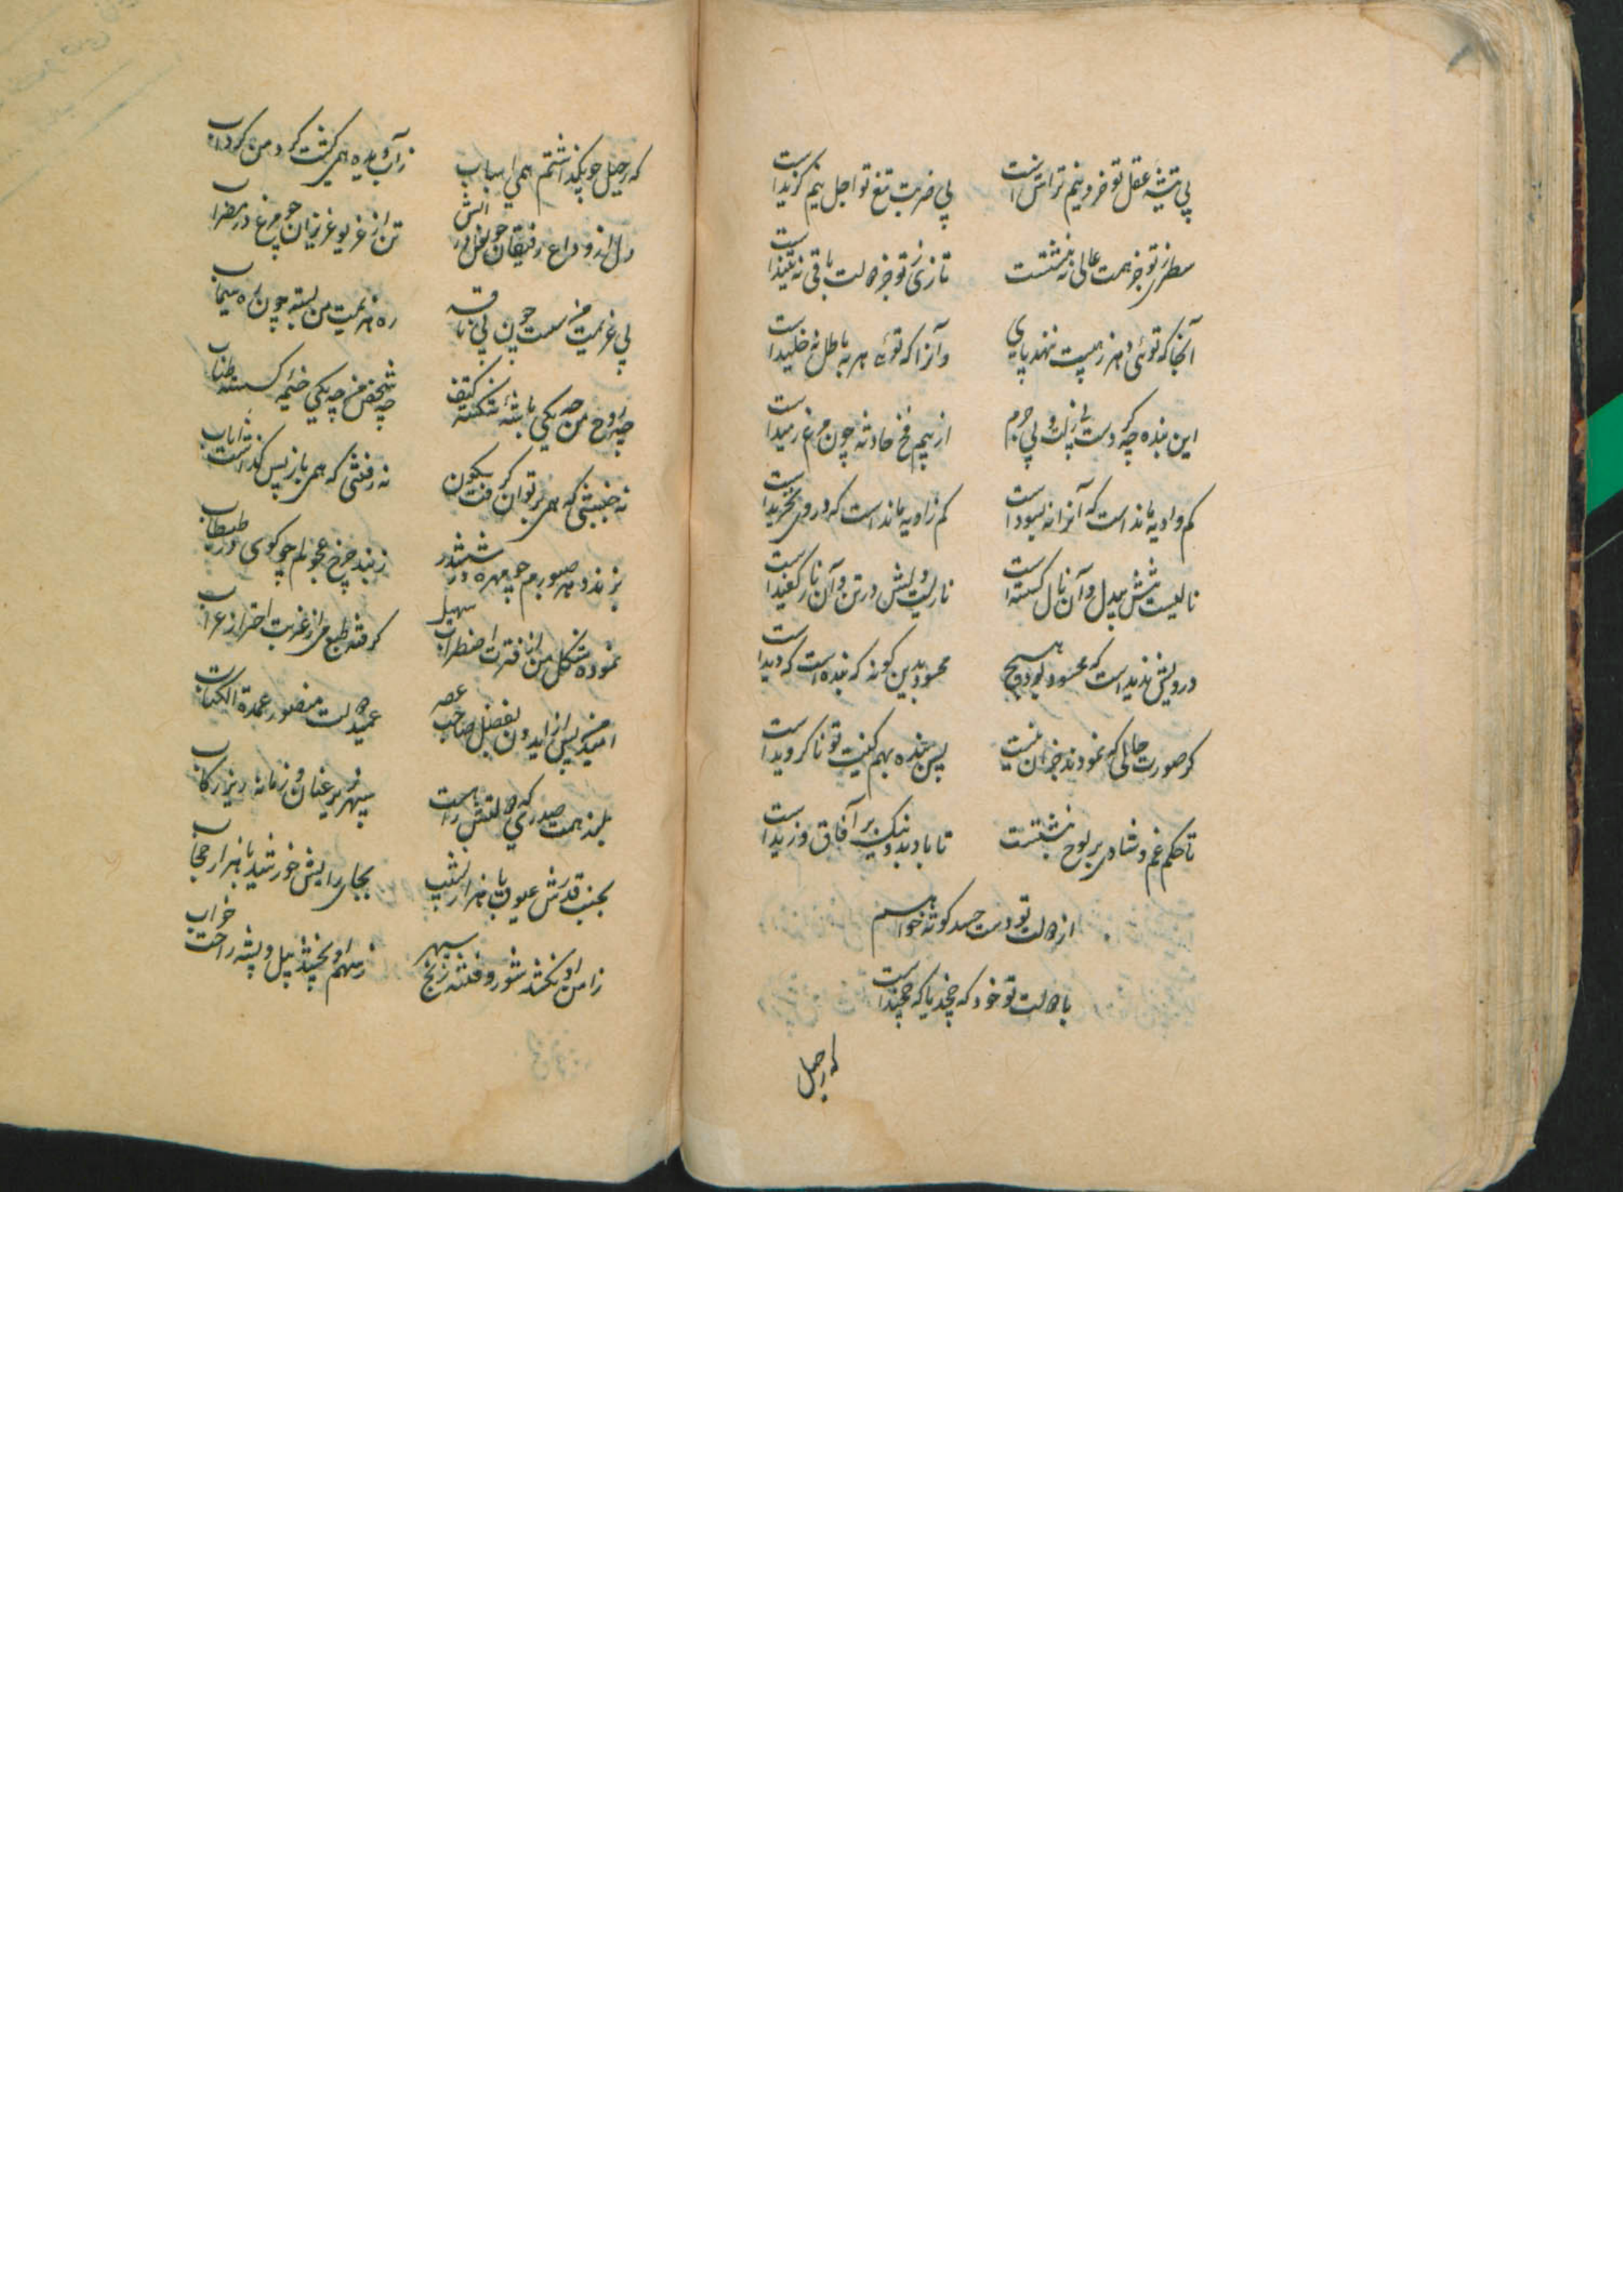 بی تیشه عقل تو خرد نیم تراش است
بی ضربت تیغ تو اجل نیم گزید است
سطری ز تو جز همت عالی ننبشتست
تاری ز تو جز دولت باقی نه تنید است
آنجا که توئی دهر ز هیبت ننهد پای
وآنرا که توئه مهره باطل نه خلید است
این بنده چه کردست بی زلت و بی جرم
از بیم فخ حادثه چون مرغ رمید است
کم واویه ماند است که آنرا نه بسود است
کم زاویه ماند است که در وی نخزید است
نالیست تنش بیدل و آن نال گسسته است
ناریست دلش در تن و آن نار کفید است
درویش ندید است که محسود بود هیچ
محسود بدین گونه که بنده است که دید است
گر صورت حالی که نمودند جز آن نیست
پس بنده بهم کنیت تو ناگروید است
تا حکم غم و شادی بر لوح نبشتست
تا باد بد و نیک بر آفاق وزید است
از دولت تو دست حسد کوته خواهم
با دولت تو خود که چخد یا که چخید است
که رحیل
که رحیل چو بگذاشتم همی اسباب
ز آب دیده همی گشت گرد من گرداب
دل از وداع رفیقان چو نعل در آتش
تن از غریو عزیزان چو مرغ در مضراب
پی عزیمت من سست چون پی ناقه
ره هزیمت من بسته چون ره سیماب
چه روح من چه یکی باشه شکسته کتف
چه شخص من چه یکی خیمه گسسته طناب
نه جنبشی که همی بر توان گرفت سکون
نه رفتنی که همی باز پس گذاشت شتاب
بنرد درد صبورم چو مهره در ششدر
ز بند چرخ عجولم چو گوی در طبطاب
نموده شکل من از فترت اضطراب سهیل
گرفته طبع من از غربت احتراز غراب
امید من پس از ایدون بفضل صاحب عصر
عمید دولت منصور عمدة الکتاب
بلند همت صدری که دولتش راهست
سپهر زیر عنان و زمانه زیر رکاب
بجنب قدرش عیوق با هزار نشیب
بجای رایش خورشید با هزار حجاب
ز امن او نکشد شور و فتنه رنج سپهر
ز سهم او بخسبد پیل و پشه راحت خواب